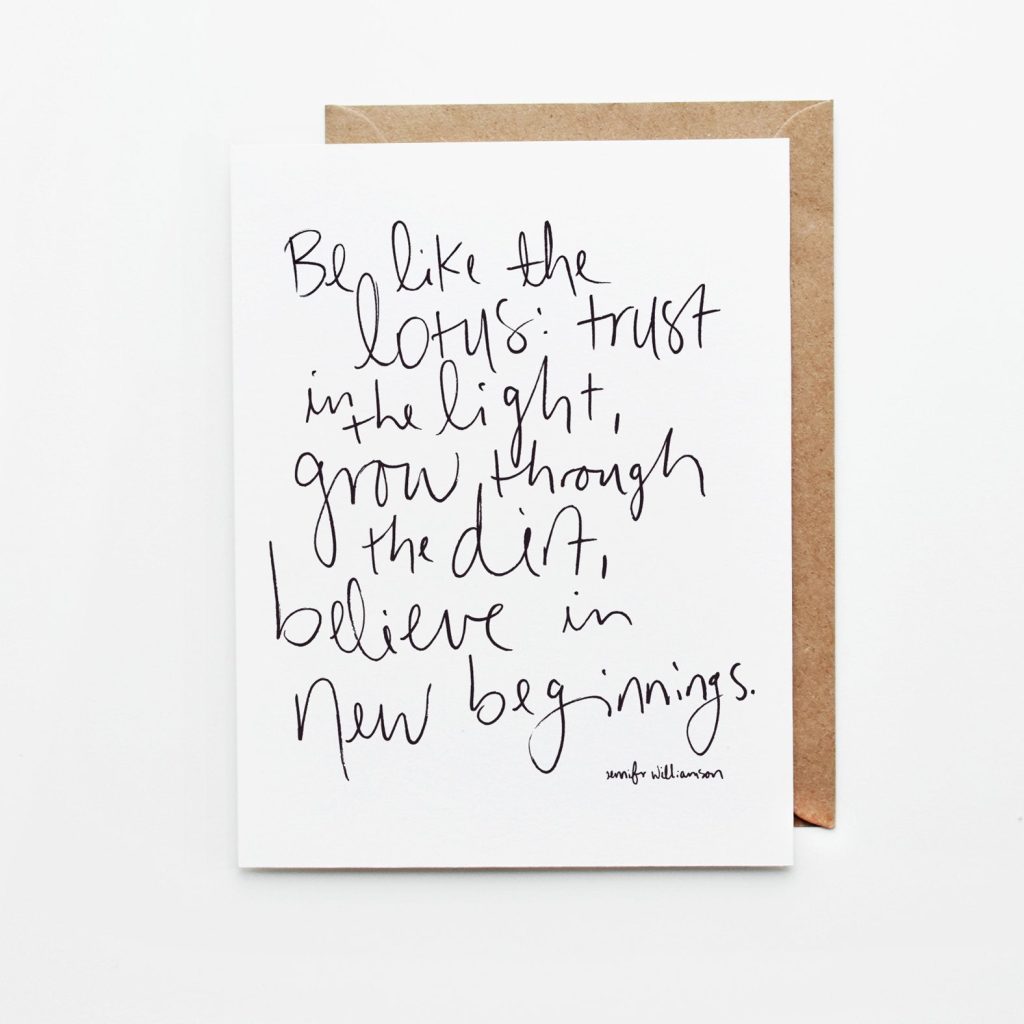 Be like the
lotus: trust
in the light,
grow through
the dirt,
believe in
new beginnings.
jennifr williamson